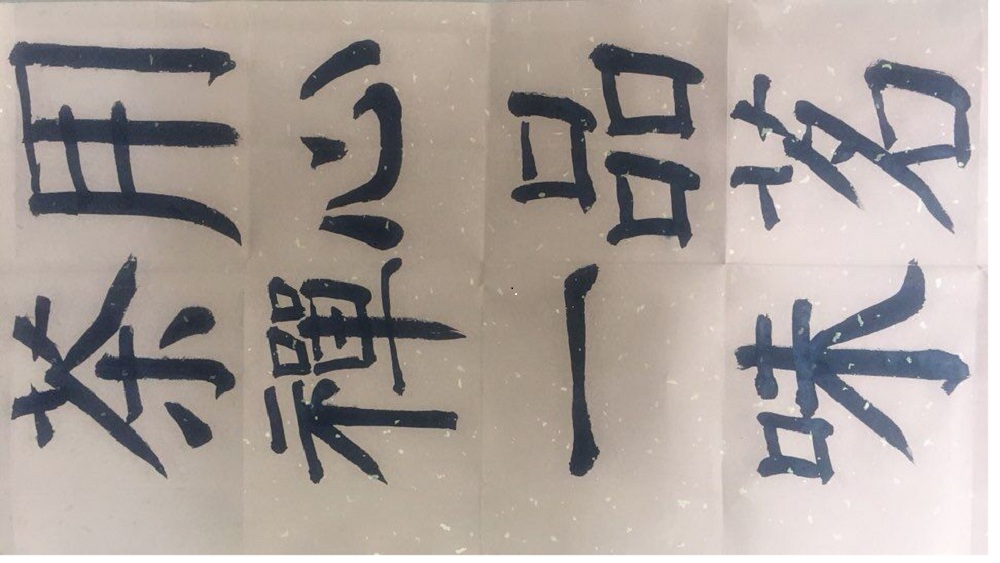 用心品茗
茶禪一味